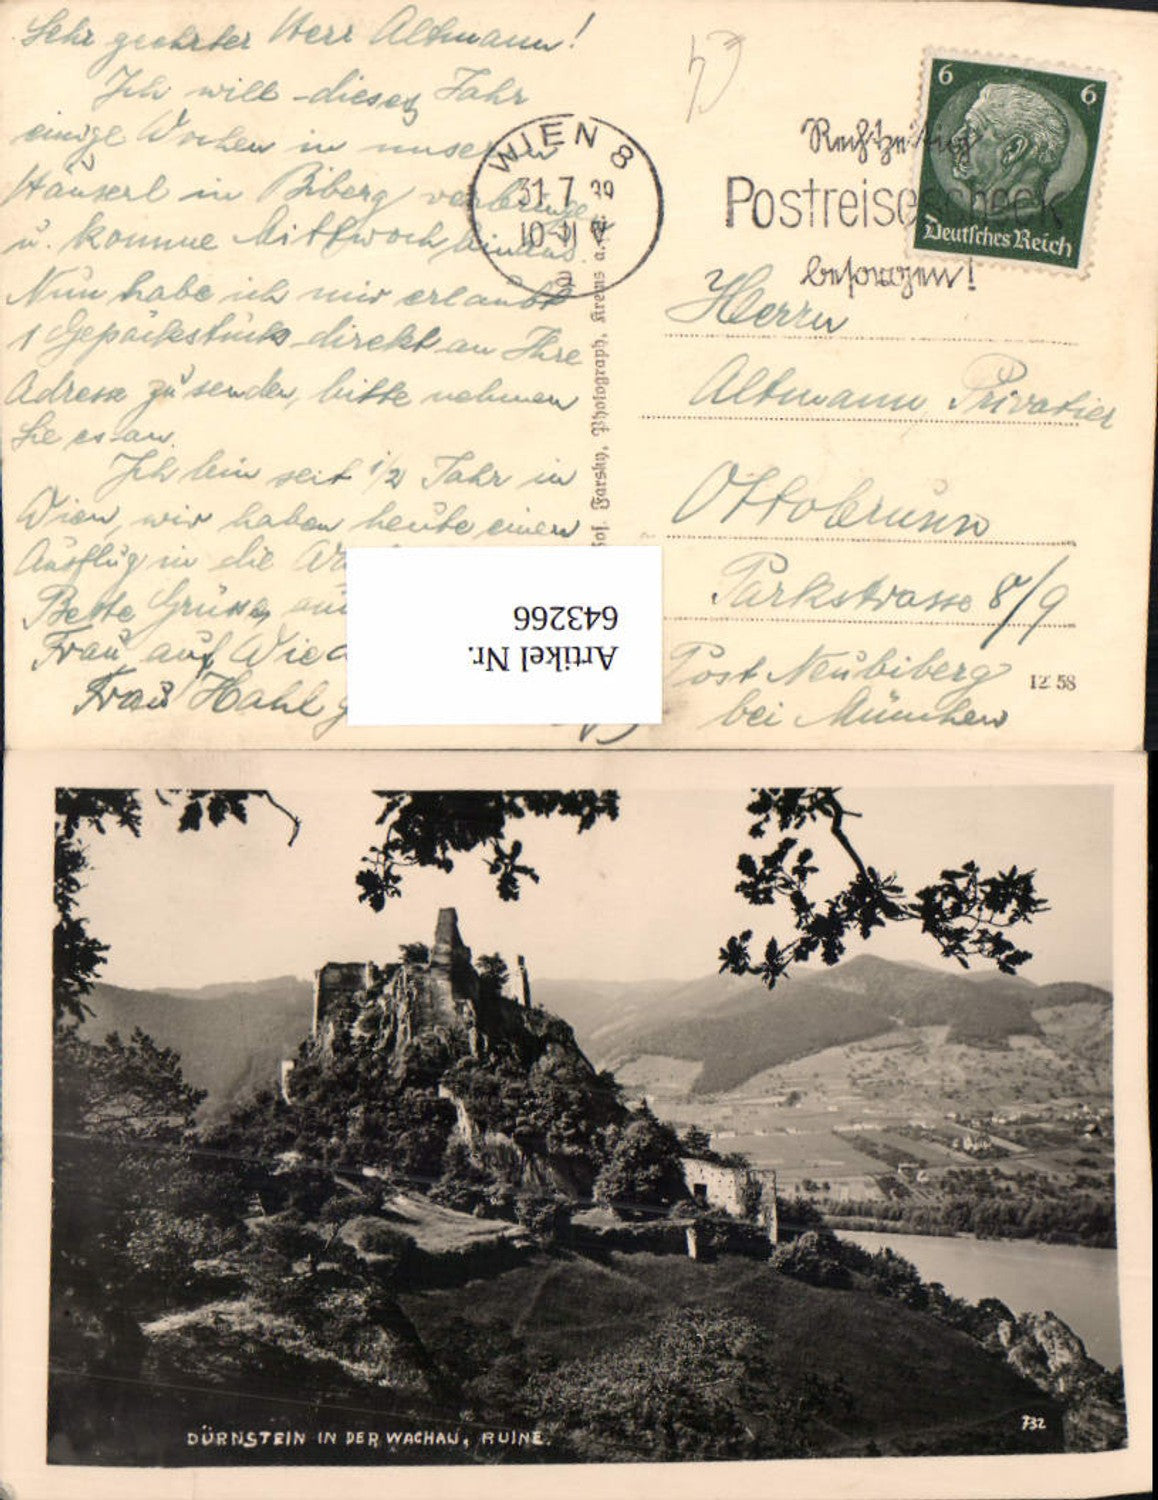 Sehr geehrter Herr Altmann!
Ich will dieses Jahr
einige Wochen in unserem
Häuserl in Biberg verbringen
u. komme Mittwoch hinaus.
Nun habe ich mir erlaubt
1 Gepäckstück direkt an Ihre
Adresse zu senden, bitte nehmen
Sie es an.
Ich bin seit 1/2 Jahr in
Wien, wir haben heute einen
Ausflug in die
Beste Grüsse
Frau auf
Frau Hahl
WIEN 8
31 7 39
10-11
a
Rechtzeitig
Postreisescheck
besorgen!
6 6
Deutsches Reich
Jos. Farsky, Photograph, Krems a. d.
Herrn
Altmann, Privatier
Ottobrunn
Parkstrasse 8/9
Post Neubiberg
bei München
12 58
Artikel Nr.
643266
DÜRNSTEIN IN DER WACHAU, RUINE.
732